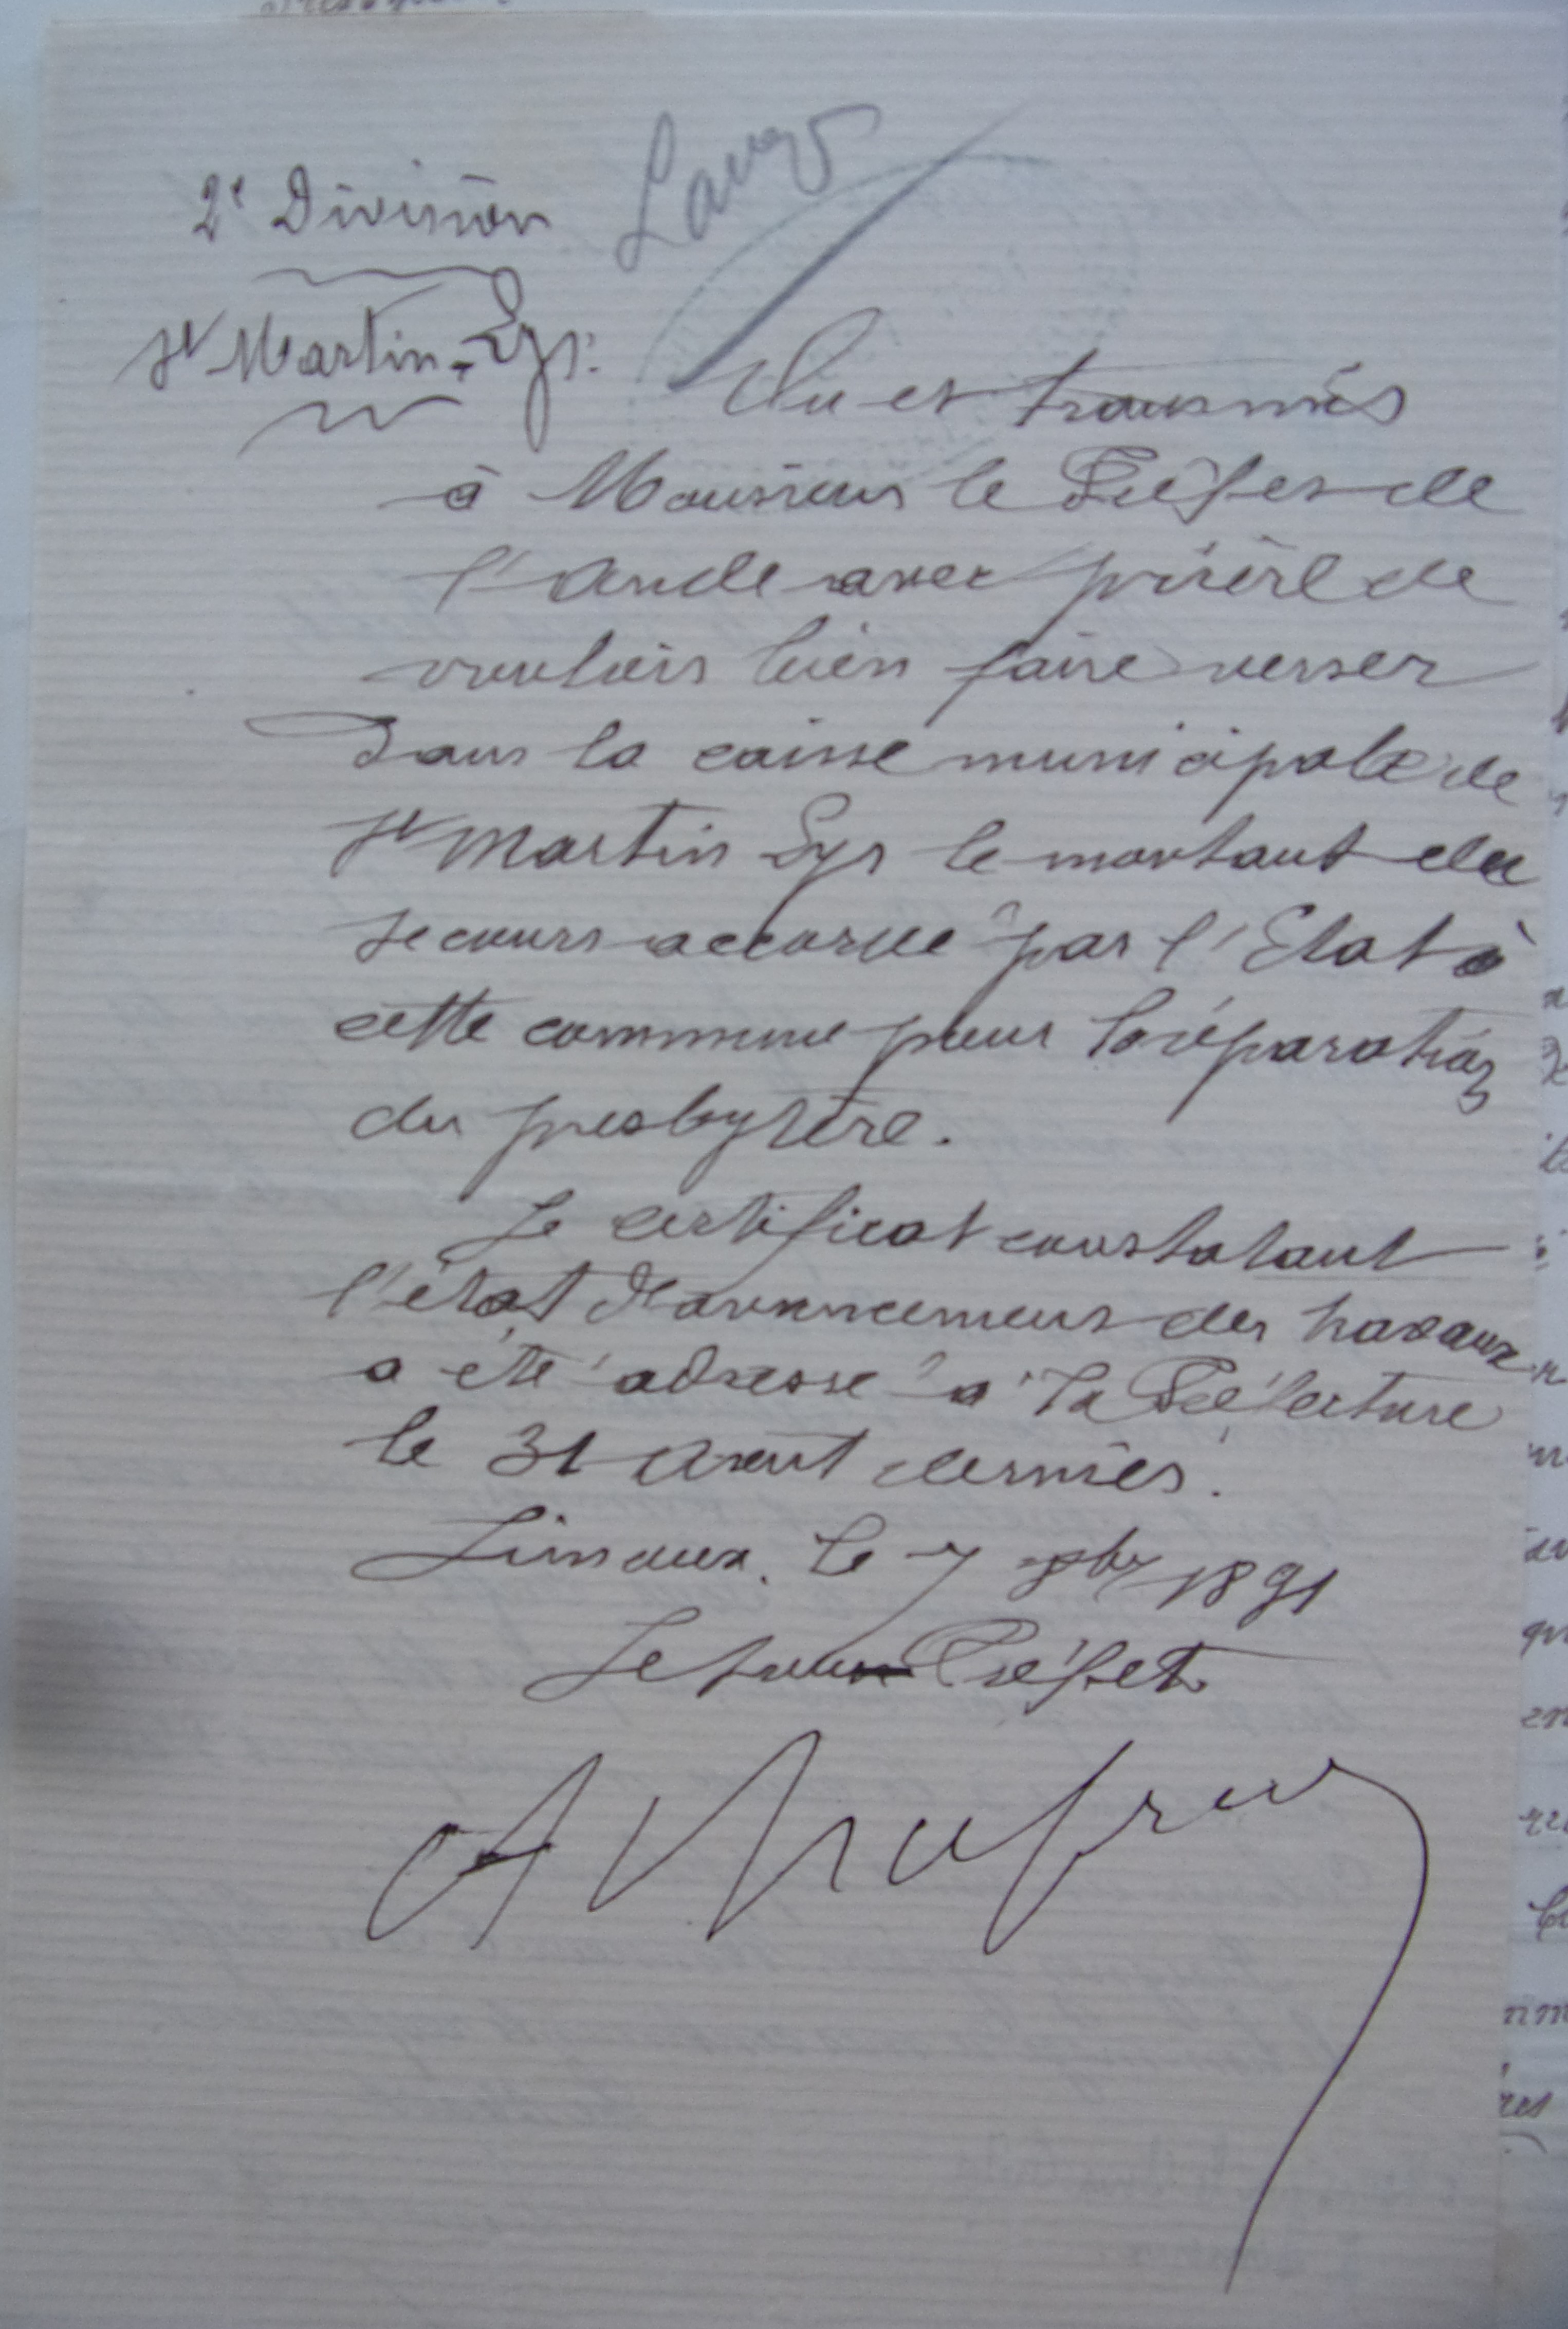 2e Division
St Martin-Lys.
Vu et transmis
à Monsieur le Préfet de
l'Aude avec prière de
vouloir bien faire verser
dans la caisse municipale de
St Martin Lys le montant du
secours accordé par l'Etat à
cette commune pour la réparation
du presbytère.
Le certificat constatant
l'état d'avancement des travaux
a été adressé à la Préfecture
le 31 Août dernier.
Limoux, le 7 1891
Le sous Préfet